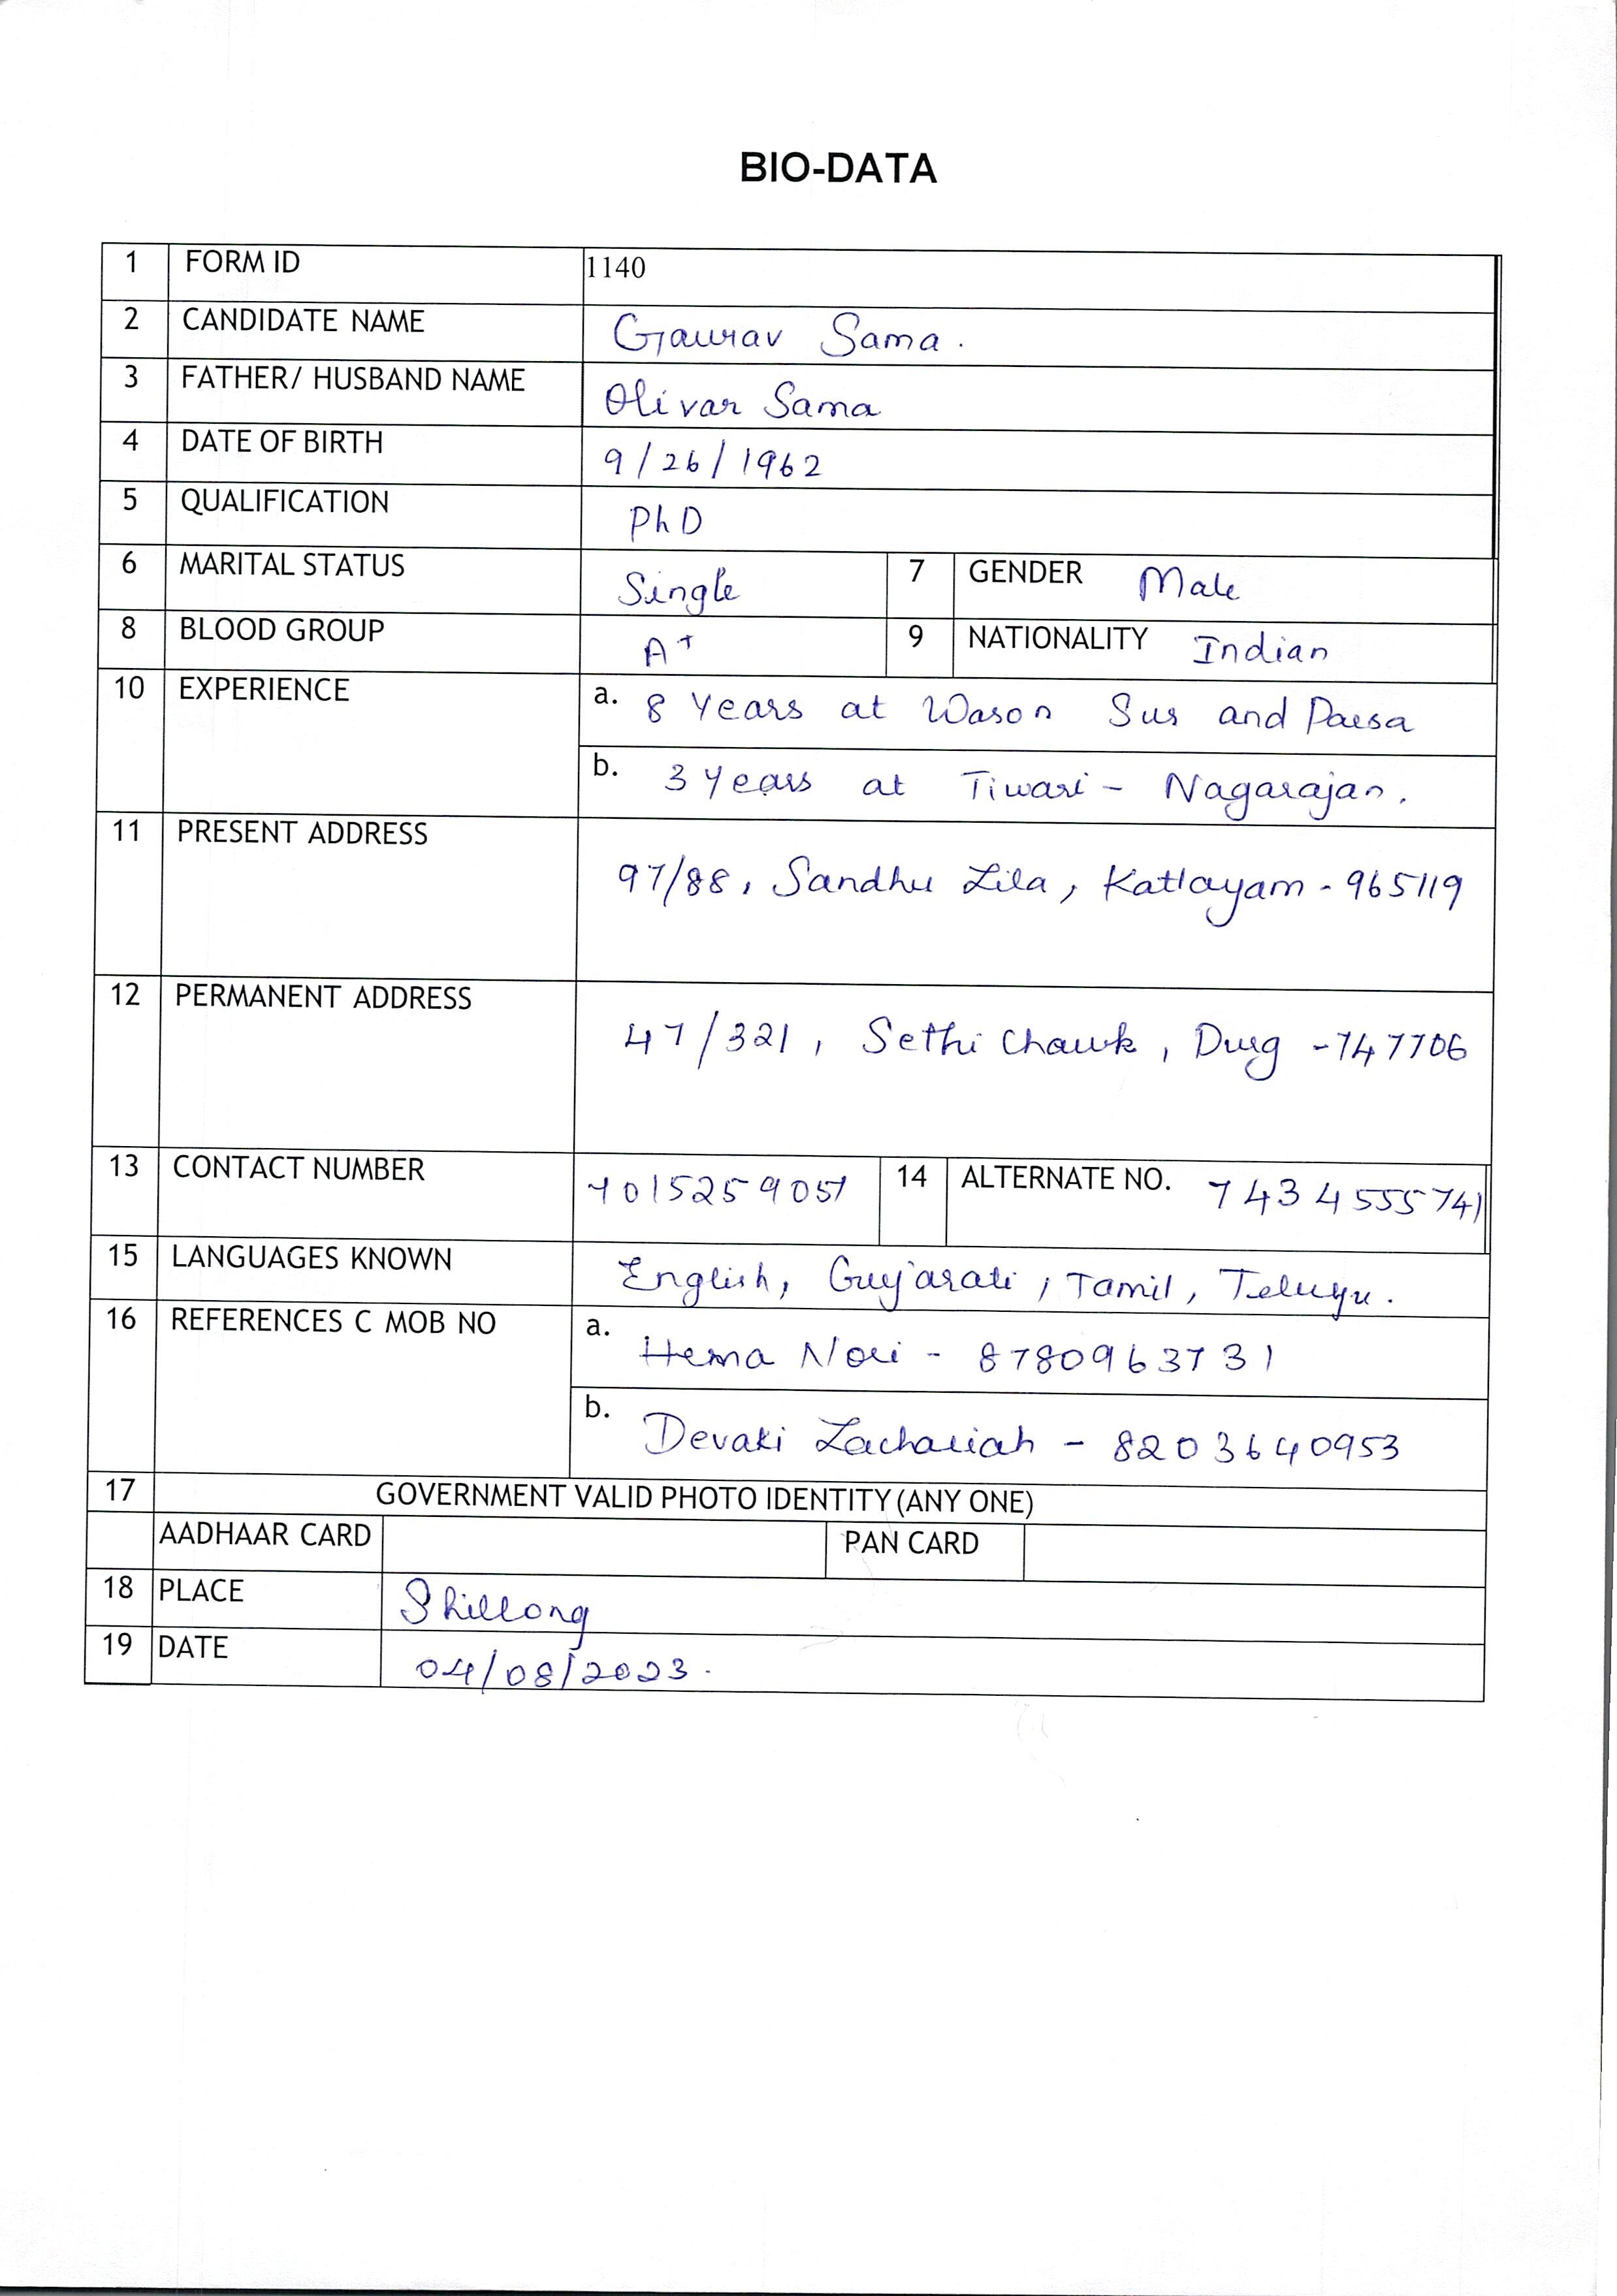 BIO-DATA
1 FORM ID 1140
2 CANDIDATE NAME Gaurav Sama.
3 FATHER/ HUSBAND NAME Olivar Sama
4 DATE OF BIRTH 9/26/1962
5 QUALIFICATION PhD
6 MARITAL STATUS Single 7 GENDER Male
8 BLOOD GROUP A+ 9 NATIONALITY Indian
10 EXPERIENCE a. 8 Years at Wason Sur and
b. 3 Years at Tiwari - Nagarajan.
11 PRESENT ADDRESS 97/88, Sandhu Lila, Katlayam - 965119
12 PERMANENT ADDRESS 47/321, Sethi Chawk, Durg - 747706
13 CONTACT NUMBER 14 ALTERNATE NO. 7434555741
15 LANGUAGES KNOWN English, Gujarati, Tamil, Telugu.
16 REFERENCES C MOB NO a. Hema Nori - 8780963731
b. Devaki Zachariah - 8203640953
17 GOVERNMENT VALID PHOTO IDENTITY (ANY ONE)
AADHAAR CARD PAN CARD
18 PLACE Shillong
19 DATE 04/08/2023.